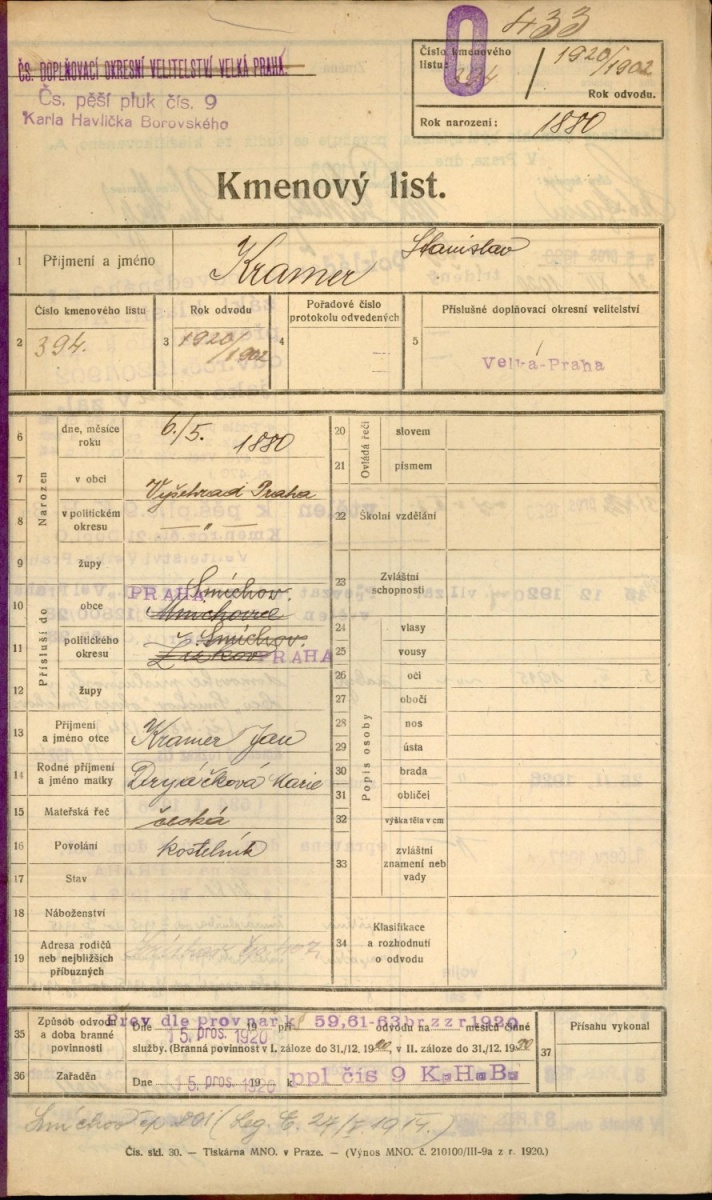 433
ČS. DOPLŇOVACÍ OKRESNÍ VELITELSTVÍ VELKÁ PRAHA.
Čs. pěší pluk čís. 9
Karla Havlíčka Borovského
Číslo kmenového listu: 394 / 1920/1902
Rok odvodu.
Rok narození: 1880
Kmenový list.
1 Příjmení a jméno Kramer Stanislav
2 Číslo kmenového listu 394.
3 Rok odvodu 1920/1902
4 Pořadové číslo protokolu odvedených —
5 Příslušné doplňovací okresní velitelství Velká-Praha
Narozen
6 dne, měsíce roku 6./5. 1880
7 v obci Vyšehrad Praha
8 v politickém okresu — " —
Přísluší do
9 župy
10 obce PRAHA Smíchov. Mnichovice
11 politického okresu Smíchov. Žižkov PRAHA
12 župy
13 Příjmení a jméno otce Kramer Jan
14 Rodné příjmení a jméno matky Dryáčková Marie
15 Mateřská řeč česká
16 Povolání kostelník
17 Stav
18 Náboženství
19 Adresa rodičů neb nejbližších příbuzných
Ovládá řeči
20 slovem
21 písmem
22 Školní vzdělání
23 Zvláštní schopnosti
Popis osoby
24 vlasy
25 vousy
26 oči
27 obočí
28 nos
29 ústa
30 brada
31 obličej
32 výška těla v cm
33 zvláštní znamení neb vady
34 Klasifikace a rozhodnutí o odvodu
35 Způsob odvodu a doba branné povinnosti
Přev dle prov nař k § 59,61-63 br z z r 1920
Dne 15. pros. 1920 při odvodu na měsíců činné
služby. (Branná povinnost v I. záloze do 31./12. 19, v II. záloze do 31./12. 1930
36 Zařaděn Dne 15. pros. 1920 k ppl čís 9 K.H.B.
37 Přísahu vykonal
Smíchov čp
Čís. skl. 30. — Tiskárna MNO. v Praze. — (Výnos MNO. č. 210100/III-9a z r. 1920.)